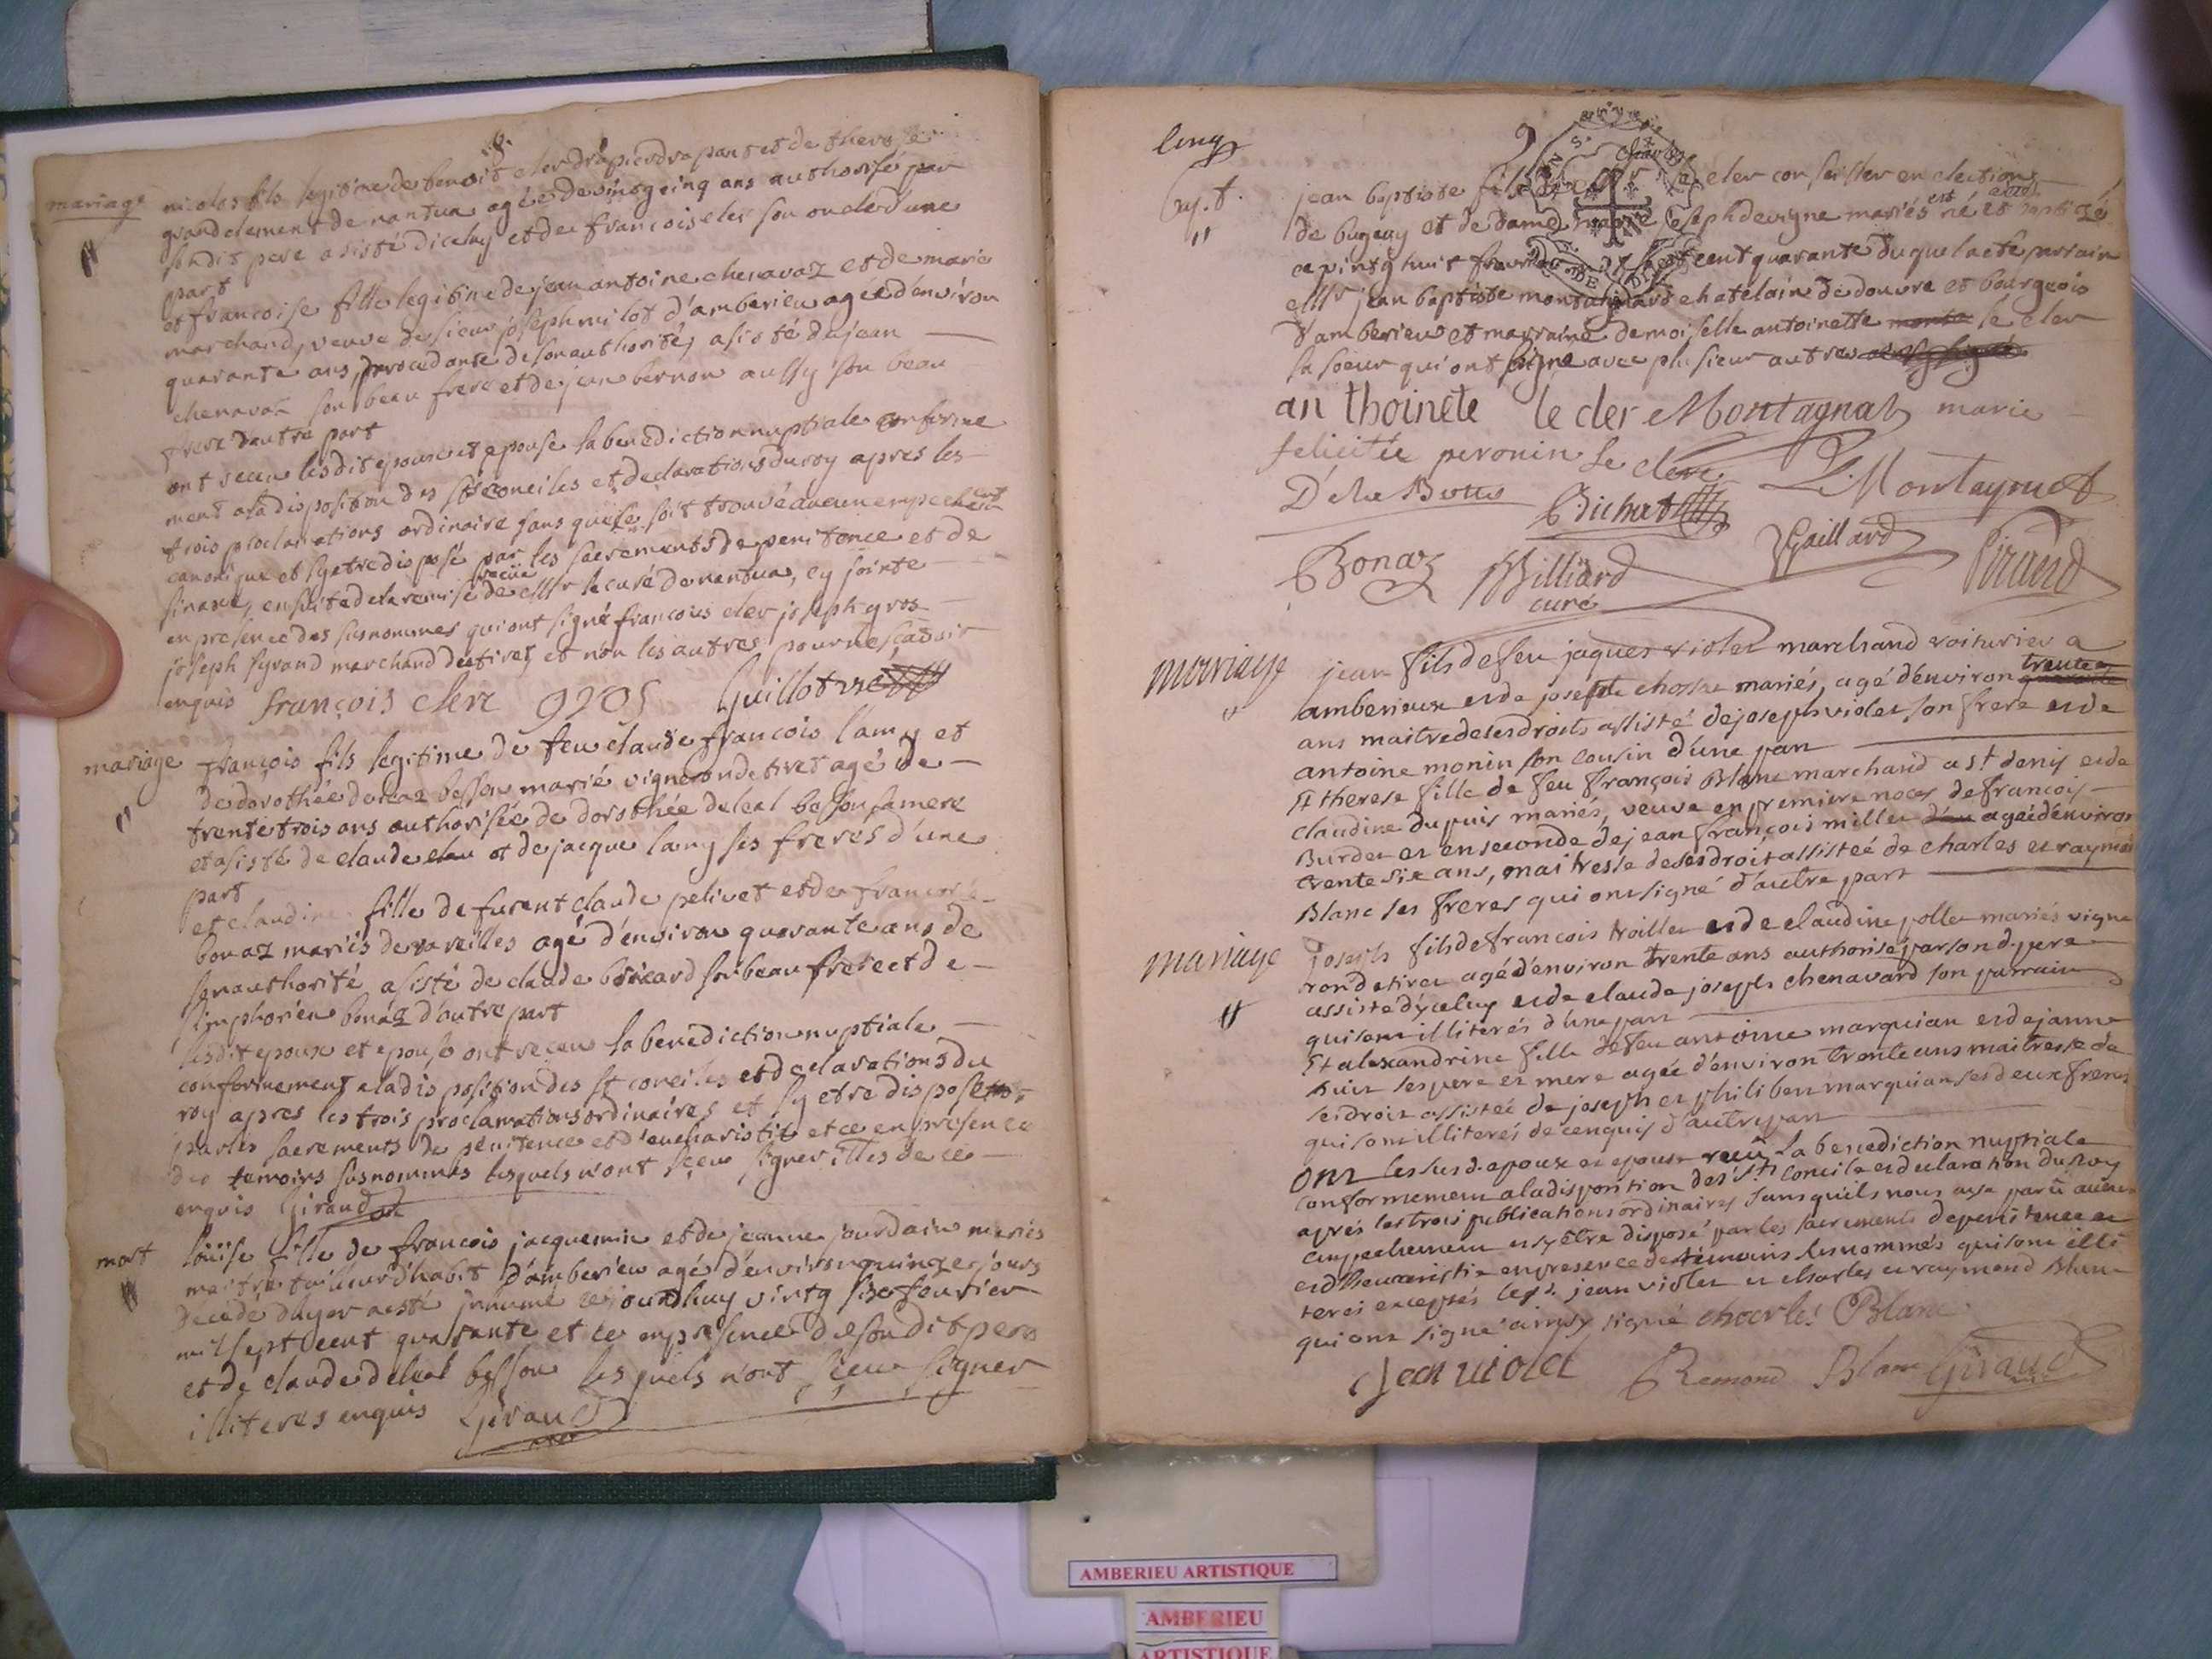 8
mariage
nicolas fils legitime de benoit cler drapier drapant et de therese
grandclement de nantua agé de vingt cinq ans authorisé par
sondit pere asisté diceluy et de francois cler son oncle d'une
part
et francoise fille legitime de jean antoine chenavaz et de marie
marchand, veuve de sieur joseph milot d'amberieu agee d'environ
quarante ans, procedante de son authorité, asisté de jean
chenavaz son beau frere et de jean bernon aussy son beau
frere d'autre part
ont receu lesdit epoux et epouse la benediction nuptiale conforme
ment a la disposition des sts conciles et declarations du roy apres les
trois proclamations ordinaire sans qu'il se soit trouvé aucun empechem ent
canonique et sy etre disposé par les sacrements de penitence et de
ensuite de la remise recüe de Mr le curé de nantua, cy jointe
en presence des susnommes qui ont signé francois cler joseph gros
joseph syrand marchand de tiret et non les autres pour ne sçavoir
enquis françois clerc gros Guillot vic
mariage
françois fils legitime de feu claude francois lamy et
de dorothée deleaz besson marié vigneron de tiret agé de
trente trois ans authorisée de dorothée deleal besson sa mere
et asisté de claude et de jacque lamy ses freres d'une
part
et claudine fille de furent claude pelivet et de francoise
bonaz mariés de vareilles agé d'environ quarante ans de
son authorité asisté de claude bricard son beau frere et de
simphorien bonaz d'autre part
lesdit epoux et epouse ont receu la benediction nuptiale
conformement a la disposition des st conciles et declarations du
roy apres les trois proclamations ordinaires et sy etre disposé
par les sacrements de penitence et d'eucharistie et ce en presence
des temoins susnommés lesquels n'ont sçeu signer illes de ce
enquis Giraud
mort
loüise fille de francois jacquemin et de jeanne jourdain mariés
maitre tailleur d'habit d'amberieu agé d'environ quinze jours
decedé d'hyer a esté inhumé ce jourdhuy vintg six feuvrier
mil sept cent quarante et ce en presence de sondit pere
et de claude deleal besson lesquels n'ont sçeu signer
illiteres enquis Giraud
9
cinq
bapt.
jean baptiste fils de Charles cler conseiller en election
de bugey et de dame marie joseph devigne mariés est né et baptizé
ce vintg huit feuvrier mil sept cent quarante duquel a eté parrain
Mr jean baptiste montagnard chatelain de douvre et bourgeois
d'amberieu et marraine demoiselle antoinette le cler
sa soeur qui ont signe avec plusieur autres
an thoinete le cler Montagnat marie
felicitée peronin Le clerc L Montagnat
Bichat
Bonaz Billiard Gaillard Giraud
curé
mariage
jean fils de feu jaques violet marchand voiturier a
amberieux et de josephte chosse mariés, agé d'environ trente
ans maitre de ses droits assisté de joseph violet son frere et de
antoine monin son cousin d'une part
Et therese fille de feu françois Blanc marchand a st denis et de
claudine dupuis mariés, veuve en premiere noces de francois
Burdet et en seconde de jean françois millet agée d'environ
trente six ans, maitresse de ses droit assisteé de charles et raymond
Blanc ses freres qui ont signé d'autre part
mariage
joseph fils de francois troillet et de claudine pollet mariés vigne
ron de tiret agé d'environ trente ans authorisé par son d. pere
assisté d'yceluy et de claude joseph chenavard son parrain
qui sont illiterés d'une part
Et alexandrine fille de feu antoine marquian et de janne
ses pere et mere agée d'environ trente ans maitresse de
ses droit assisteé de joseph et philibert marquian ses deux freres
qui sont illiterés de ce enquis d'autre part
Ont les susd. epoux et epouse reçu la benediction nuptiale
conformement a la disposition des sts concile et declaration du Roy
aprés les trois publications ordinaires sans qu'ils nous aye paru aucun
empechement et sy être disposé par les sacrements de penitence et
et d'heucaristie en presence de témoins susnommés qui sont illi
terés exceptés lesd. jean violet et charles et raymond Blanc
qui ont signé ainsy signé charles Blanc
Jean violet Remond Blanc Giraud
AMBERIEU ARTISTIQUE
AMBERIEU
ARTISTIQUE